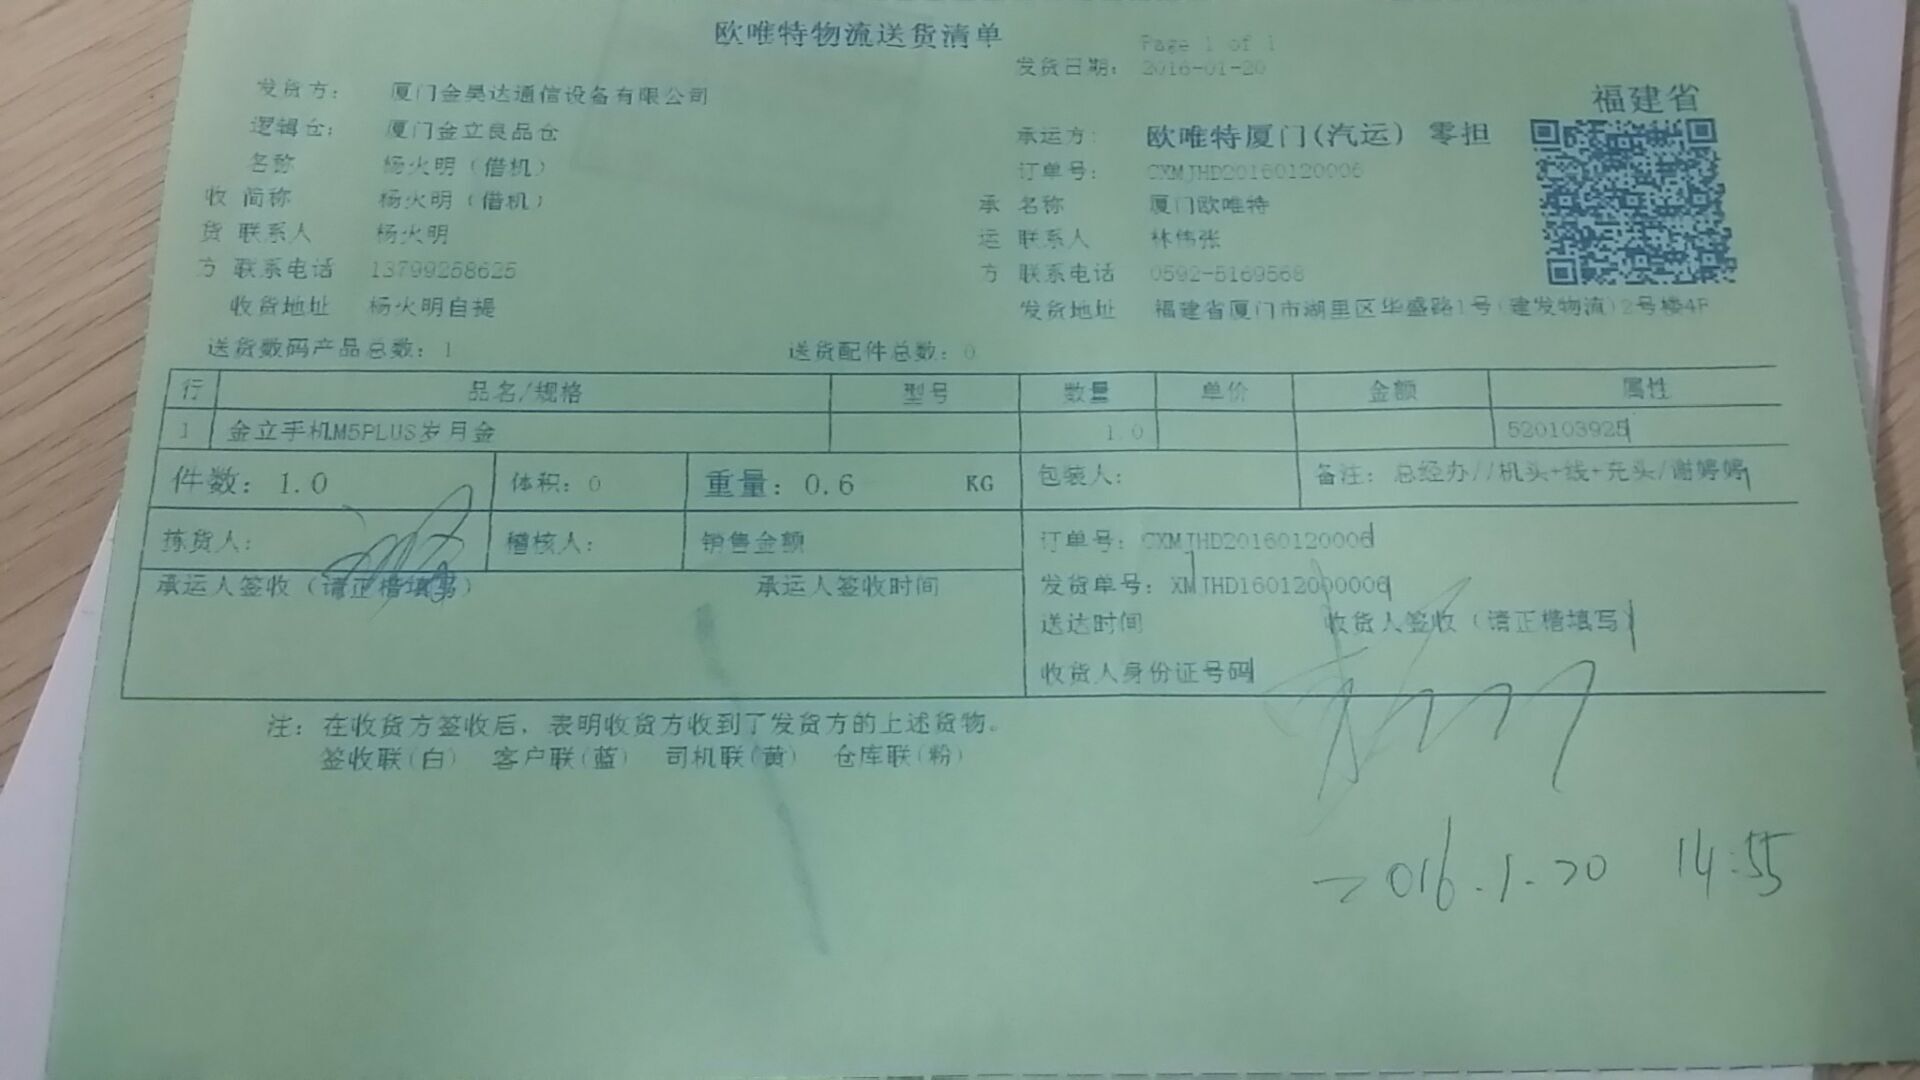 欧唯特物流送货清单
Page 1 of 1
发货日期: 2016-01-20
福建省
发货方: 厦门金昊达通信设备有限公司
逻辑仓: 厦门金立良品仓
承运方: 欧唯特厦门(汽运) 零担
名称 杨火明(借机)
订单号: CXMJHD20160120006
收 简称 杨火明(借机)
承 名称 厦门欧唯特
货 联系人 杨火明
运 联系人 林伟张
方 联系电话 13799258625
方 联系电话 0592-5169568
收货地址 杨火明自提
发货地址 福建省厦门市湖里区华盛路1号(建发物流)2号楼4F
送货数码产品总数: 1 送货配件总数: 0
行 品名/规格 型号 数量 单价 金额 属性
1 金立手机M5PLUS岁月金 1.0 520103925
件数: 1.0 体积: 0 重量: 0.6 KG 包装人: 备注: 总经办//机头+线+充头/谢婷婷
拣货人: 稽核人: 销售金额 订单号: CXMJHD20160120006
承运人签收(请正楷填写) 承运人签收时间 发货单号: XMJHD16012000006
送达时间 收货人签收(请正楷填写)
收货人身份证号码
注: 在收货方签收后, 表明收货方收到了发货方的上述货物。
签收联(白) 客户联(蓝) 司机联(黄) 仓库联(粉)
2016.1.20 14:55